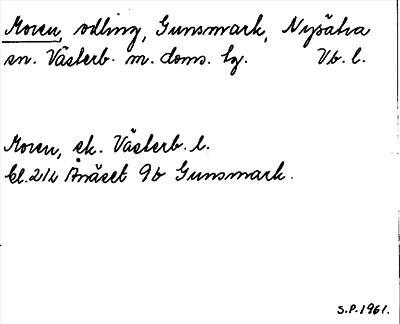 Moren, odling, Gunsmark, Nysätra
sn. Västerb. m. doms. lg. Vb. l.
Moren, ek. Västerb. l.
Bl. 21L Ånäset 9b Gunsmark.
S.P. 1961.